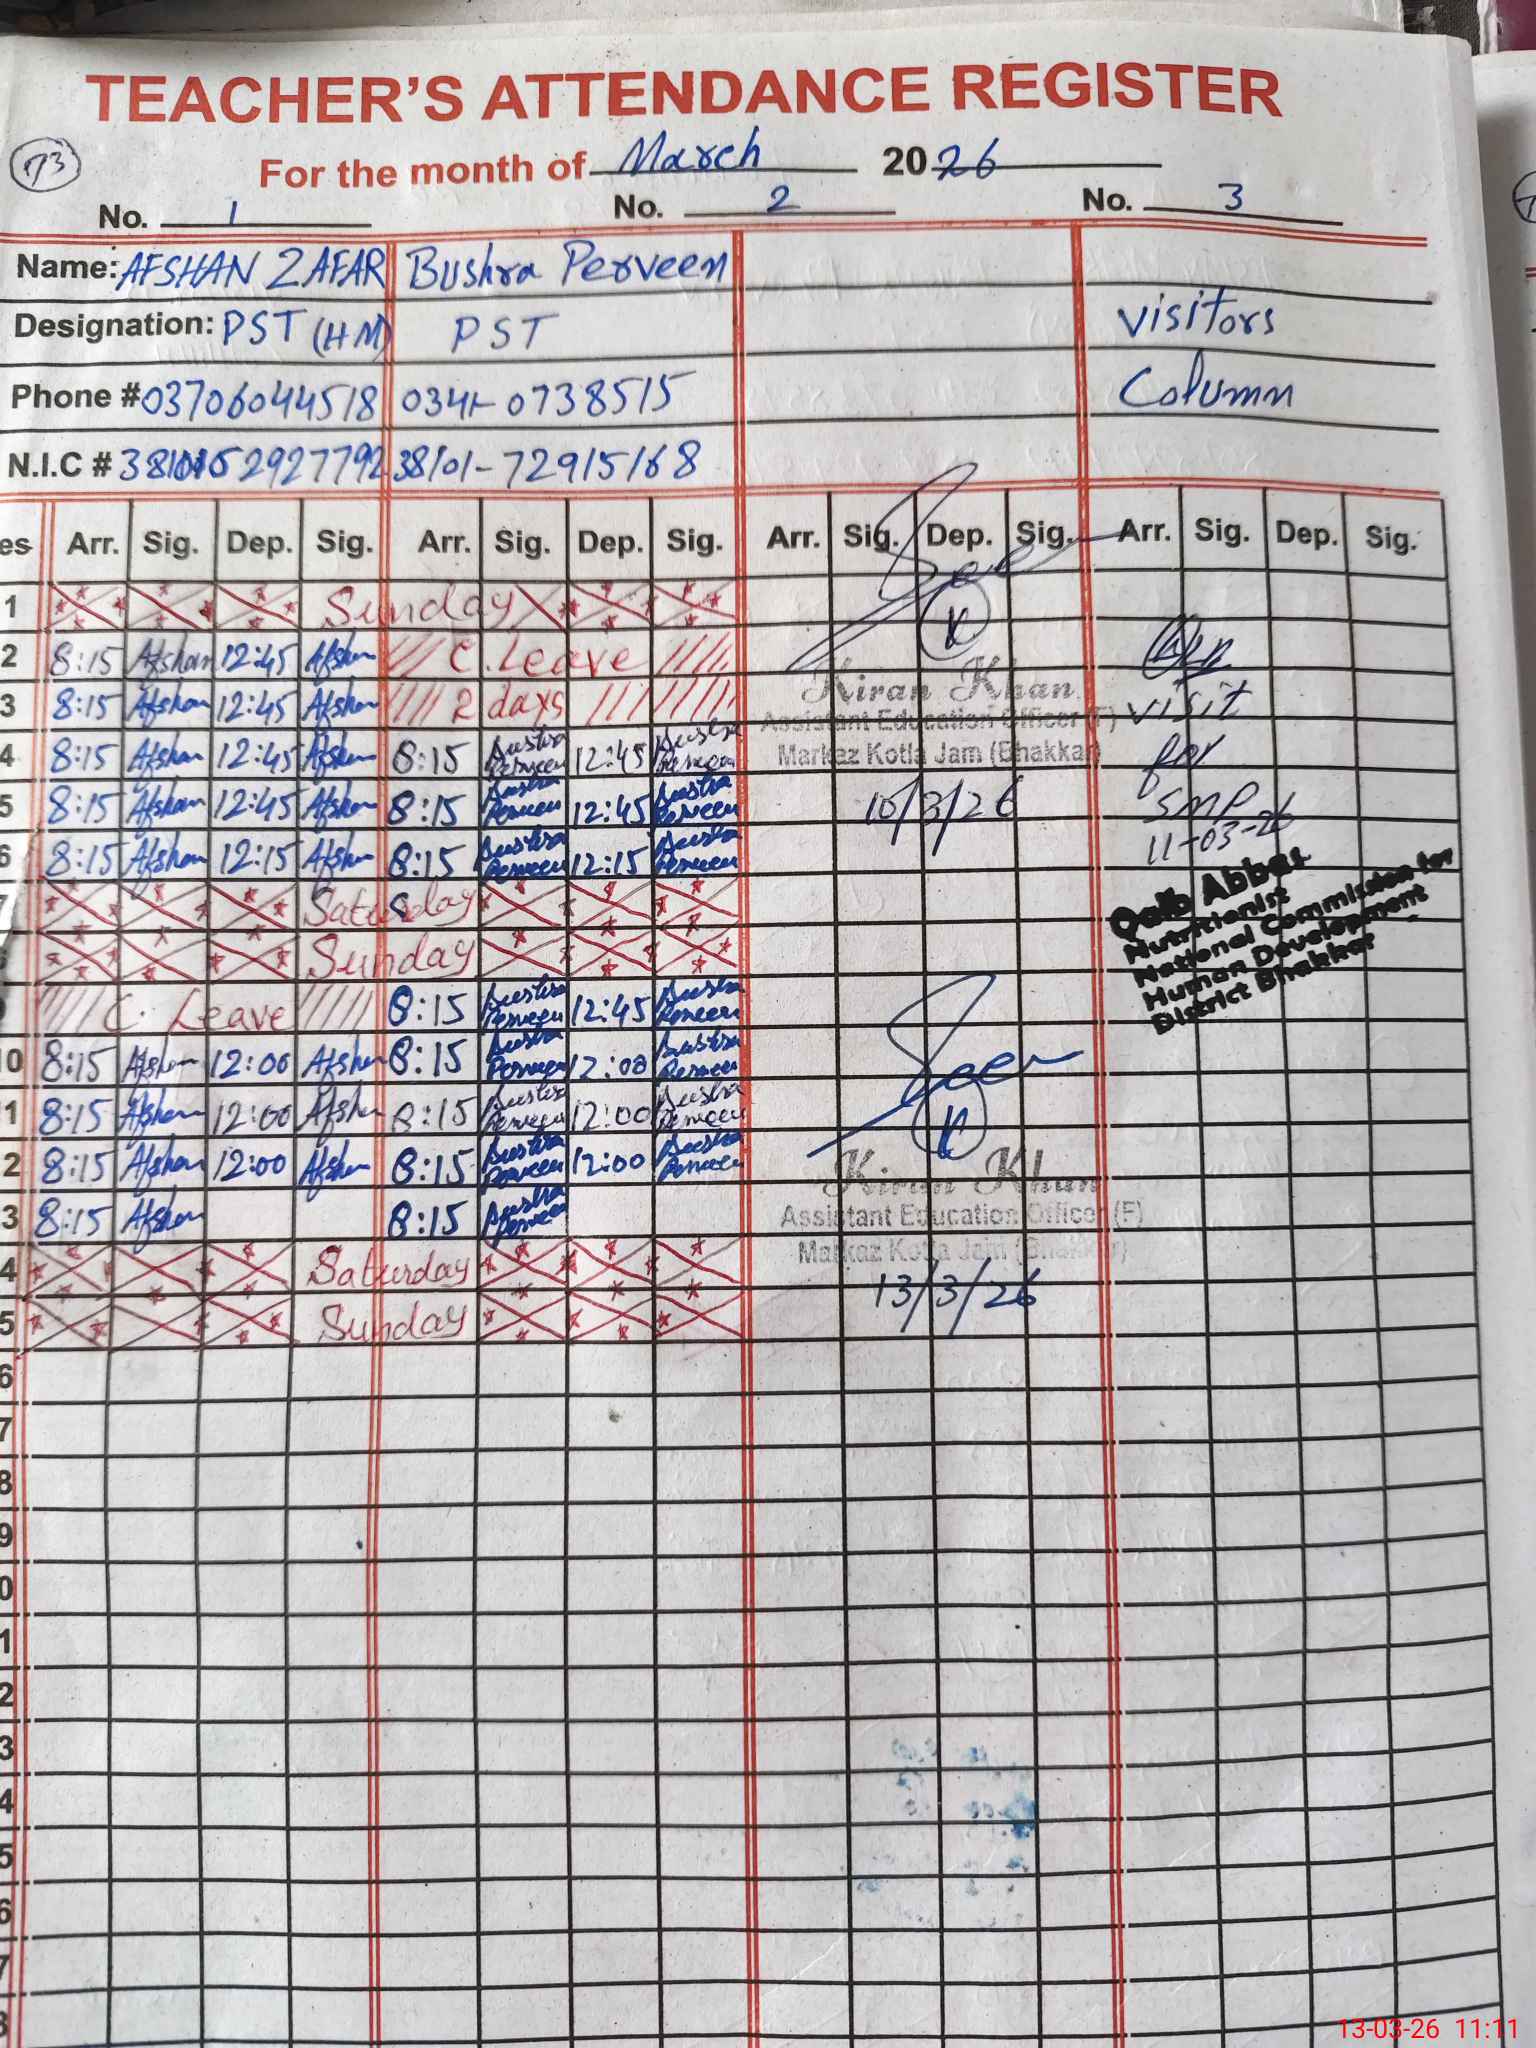 TEACHER'S ATTENDANCE REGISTER
73
For the month of March 2026
No. 1 No. 2 No. 3
Name: AFSHAN ZAFAR Bushra Perveen
Designation: PST (HM) PST visitors
Phone # 03706044518 0341-0738515 Column
N.I.C # 2927792 38101-72915168
es Arr. Sig. Dep. Sig. Arr. Sig. Dep. Sig. Arr. Sig. Dep. Sig. Arr. Sig. Dep. Sig.
1 Sunday Seen
2 8:15 Afshan 12:45 Afshan C. Leave
Kiran Khan
3 8:15 Afshan 12:45 Afshan 2 days visit
Assistant Education Officer (F)
4 8:15 Afshan 12:45 Afshan 8:15 Bushra Perveen 12:45 Bushra Perveen for
Markaz Kotla Jam (Bhakkar)
5 8:15 Afshan 12:45 Afshan 8:15 Bushra Perveen 12:45 Bushra Perveen 10/3/26 SMP
6 8:15 Afshan 12:15 Afshan 8:15 Bushra Perveen 12:15 Bushra Perveen 11-03-26
7 Saturday
Qalb Abbas
Nutritionist
National Commission for
Human Development
District Bhakkar
Sunday
C. Leave 8:15 Bushra Perveen 12:45 Bushra Perveen
10 8:15 Afshan 12:00 Afshan 8:15 Bushra Perveen 12:00 Bushra Perveen Seen
1 8:15 Afshan 12:00 Afshan 8:15 Bushra Perveen 12:00 Bushra Perveen
2 8:15 Afshan 12:00 Afshan 8:15 Bushra Perveen 12:00 Bushra Perveen
Kiran Khan
3 8:15 Afshan 8:15 Bushra Perveen
Assistant Education Officer (F)
Markaz Kotla Jam (Bhakkar)
4 Saturday 13/3/26
5 Sunday
6
7
8
9
0
1
2
3
4
5
6
7
8
13-03-26 11:11